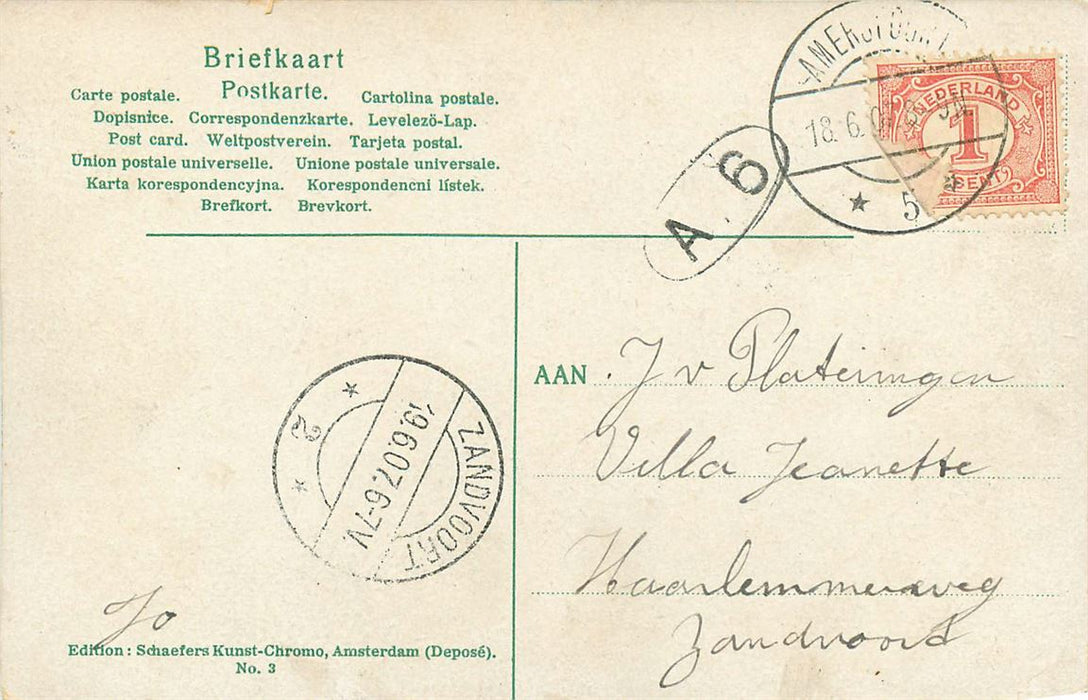 Briefkaart
Postkarte.
Carte postale. Cartolina postale.
Dopisnice. Correspondenzkarte. Levelezö-Lap.
Post card. Weltpostverein. Tarjeta postal.
Union postale universelle. Unione postale universale.
Karta korespondencyjna. Korespondencni lístek.
Brefkort. Brevkort.
NEDERLAND
1
CENT
18.6.07
5
A.6
AAN J v Plateringen
Villa Jeanette
Haarlemmerweg
Zandvoord
ZANDVOORT
19.6.07.6-7V
2
Jo
Edition: Schaefers Kunst-Chromo, Amsterdam (Deposé).
No. 3